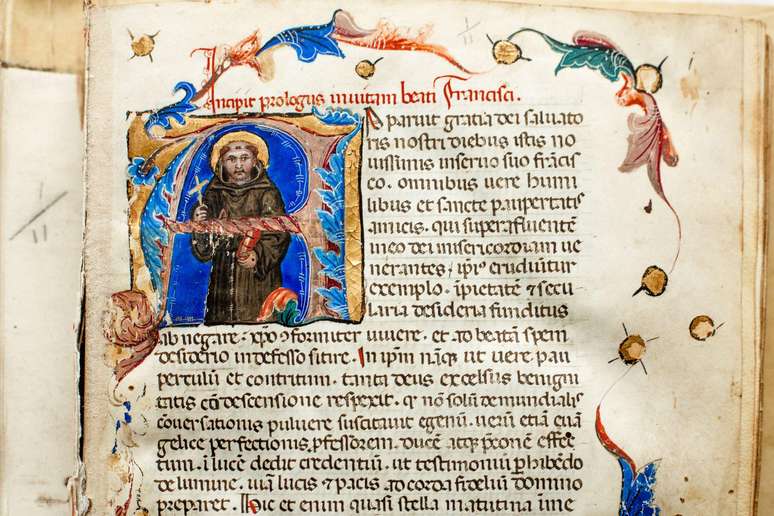 Incipit prologus in vitam beati Francisci.
Aparuit gratia dei saluato
ris nostri diebus istis no
uissimis in seruo suo frācis
co. omnibus uere humi
libus et sancte paupertatis
amicis. qui superaffluentē
in eo dei misericordiam ue
nerantes. ipi' erudiuntur
exemplo. īpietatē & secu
laria desideria funditus
abnegare. xp̄o ɔformiter uiuere. et ad beatam spem
desiderio indefesso sitire. In ip̄m nāq; ut uere pau
perculum et contritum. tanta deus excelsus benigni
tatis cōdescensione respexit. q' non solū de mundialis
cōuersationis puluere suscitauit egenū. uerū etiā euā
gelice perfectionis ꝓfessorem. ducē atq; p̄conē effec
tum. ī lucē dedit credentiū. ut testimoniū ꝑhibēdo
de lumine. uiā lucis & pacis ad corda fidelium domino
prepararet. Hic etenim quasi stella matutina ī me
1/11
1/11